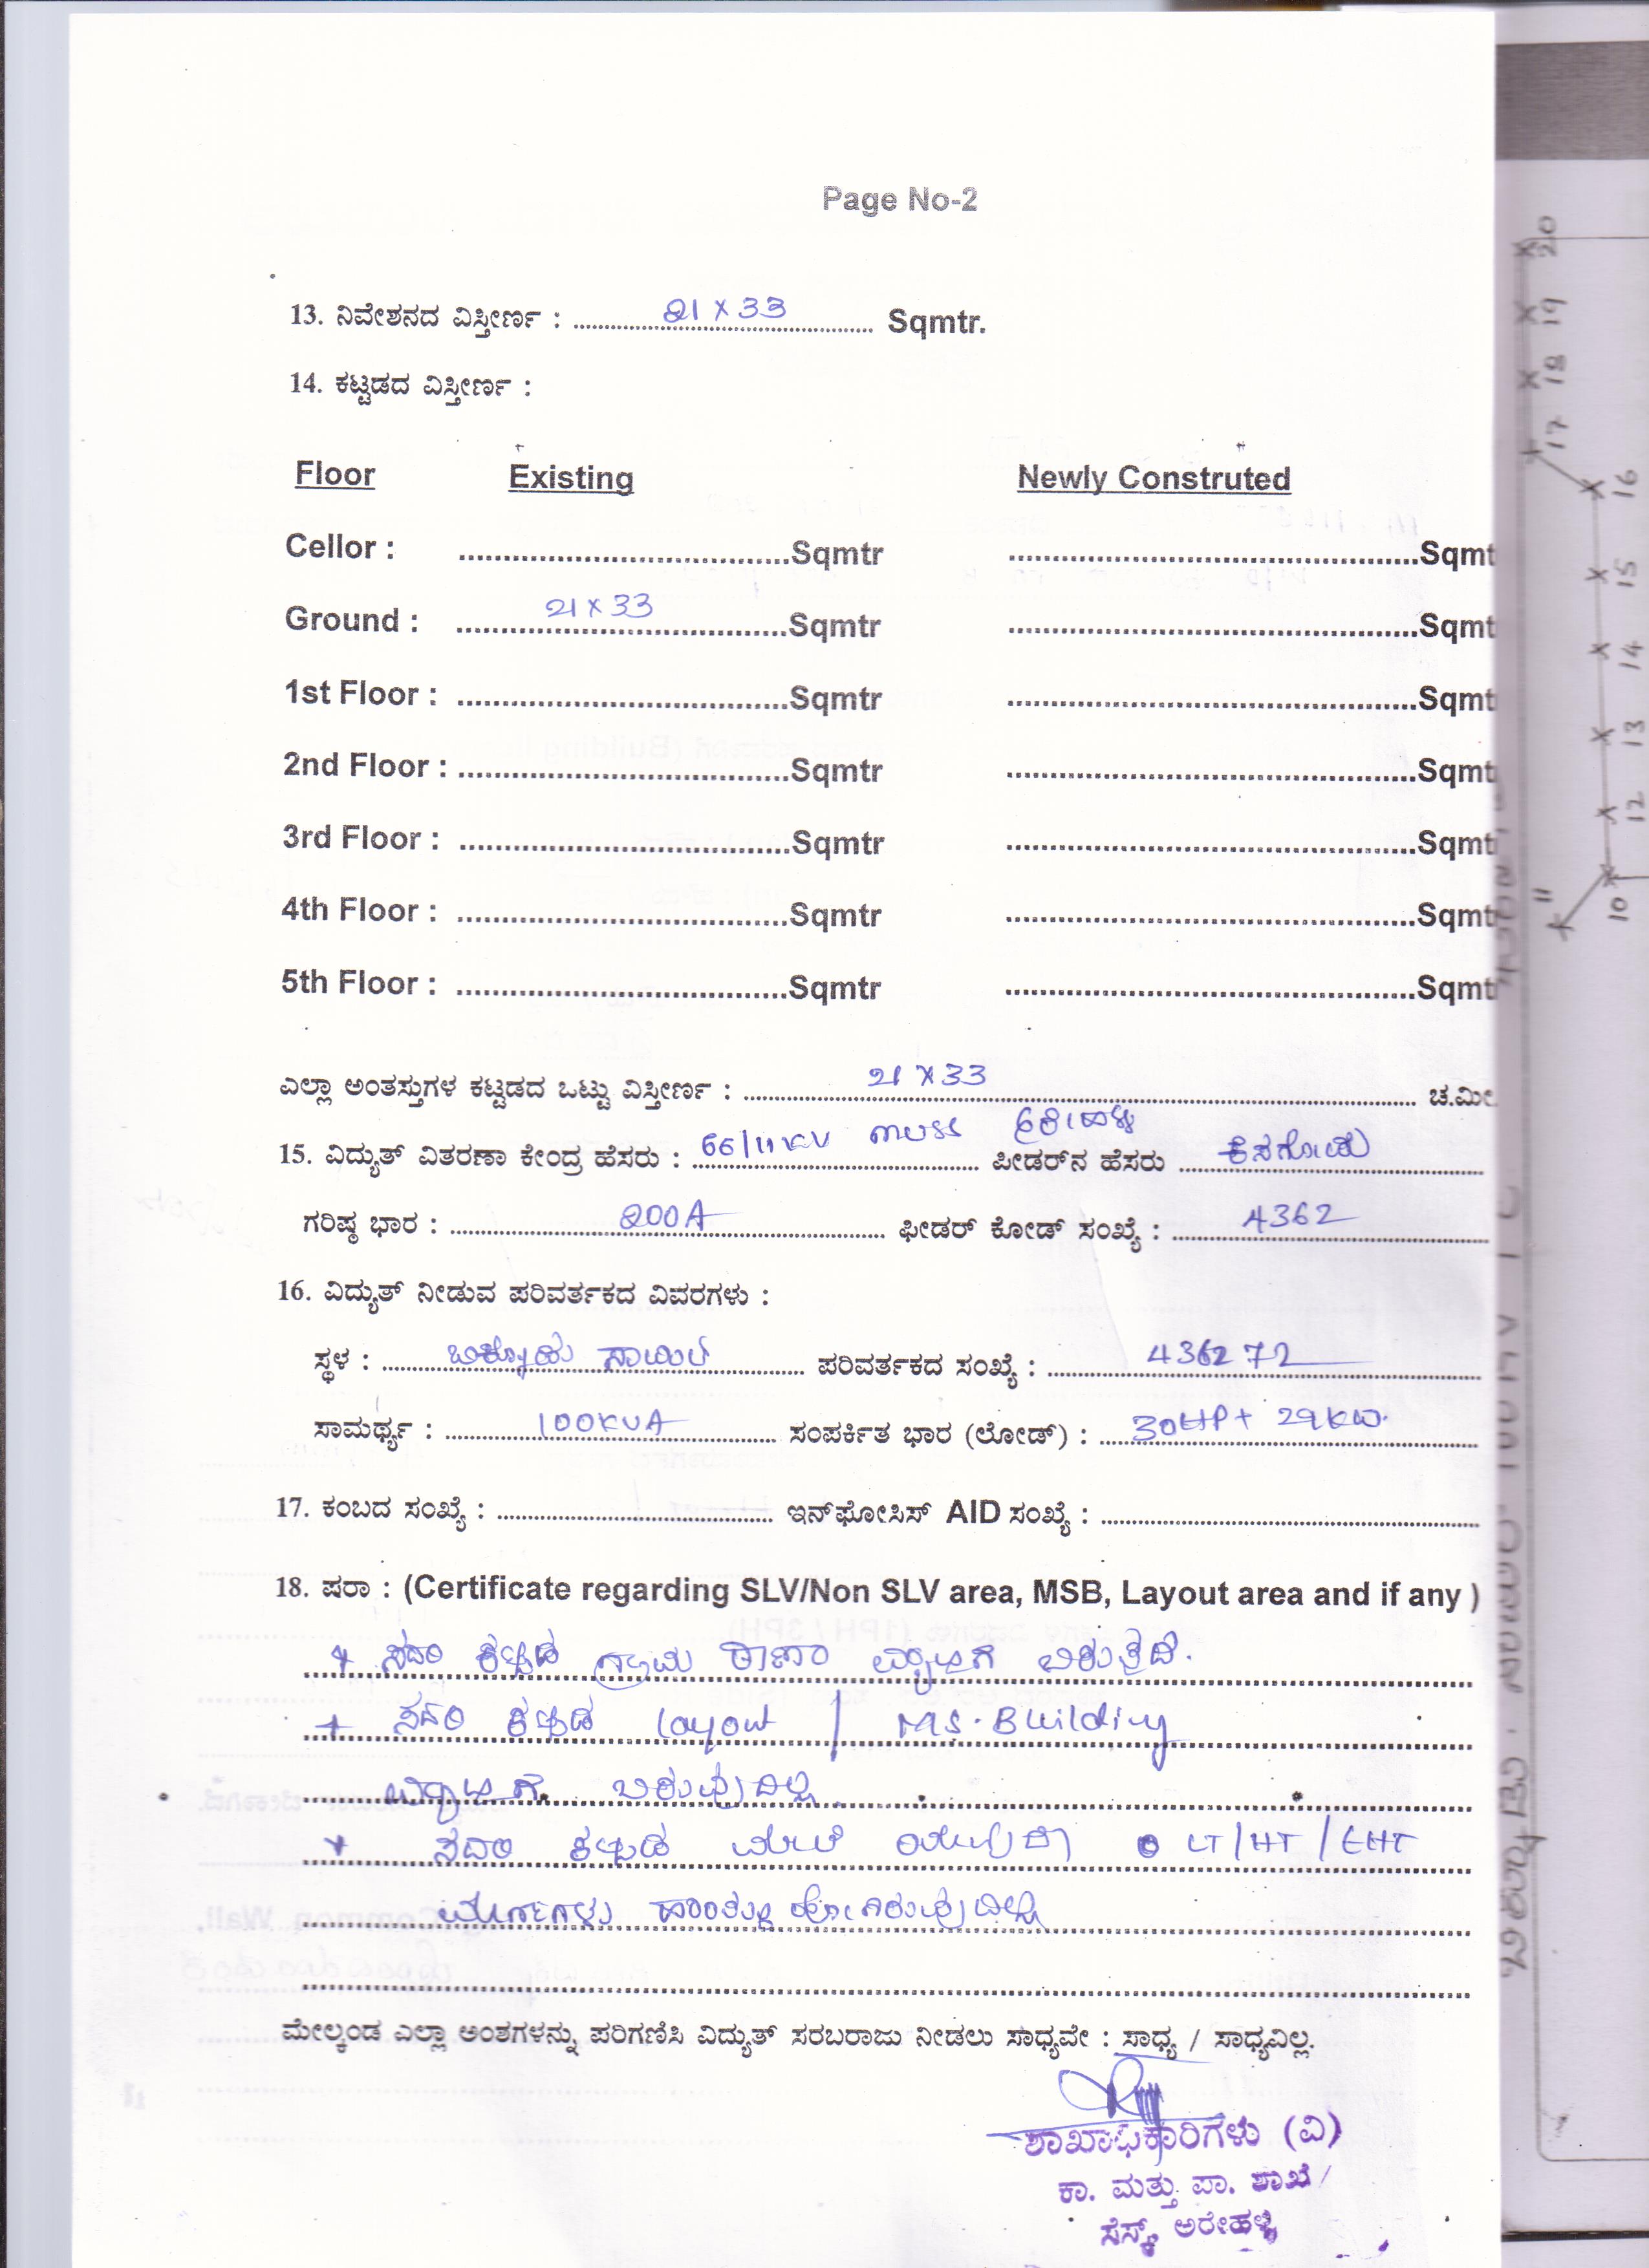 Page No-2
13. ನಿವೇಶನದ ವಿಸ್ತೀರ್ಣ : 21 x 33 Sqmtr.
14. ಕಟ್ಟಡದ ವಿಸ್ತೀರ್ಣ :
Floor Existing Newly Construted
Cellor : Sqmtr Sqmt
Ground : 21 x 33 Sqmtr Sqmt
1st Floor : Sqmtr Sqmt
2nd Floor : Sqmtr Sqmt
3rd Floor : Sqmtr Sqmt
4th Floor : Sqmtr Sqmt
5th Floor : Sqmtr Sqmt
ಎಲ್ಲಾ ಅಂತಸ್ತುಗಳ ಕಟ್ಟಡದ ಒಟ್ಟು ವಿಸ್ತೀರ್ಣ : 21 x 33 ಚ.ಮೀ
15. ವಿದ್ಯುತ್ ವಿತರಣಾ ಕೇಂದ್ರ ಹೆಸರು : 66/11KV MUSS ಪೀಡರ್‌ನ ಹೆಸರು ಕೆಸಗೋಡು
ಗರಿಷ್ಠ ಭಾರ : 200A ಫೀಡರ್ ಕೋಡ್ ಸಂಖ್ಯೆ : 4362
16. ವಿದ್ಯುತ್ ನೀಡುವ ಪರಿವರ್ತಕದ ವಿವರಗಳು :
ಸ್ಥಳ : ಪರಿವರ್ತಕದ ಸಂಖ್ಯೆ : 436272
ಸಾಮರ್ಥ್ಯ : 100KVA ಸಂಪರ್ಕಿತ ಭಾರ (ಲೋಡ್) : 30HP + 29KW.
17. ಕಂಬದ ಸಂಖ್ಯೆ : ಇನ್‌ಫೋಸಿಸ್ AID ಸಂಖ್ಯೆ :
18. ಷರಾ : (Certificate regarding SLV/Non SLV area, MSB, Layout area and if any )
ಸದರಿ ಕಟ್ಟಡ ಗ್ರಾಮ ಠಾಣಾ ವ್ಯಾಪ್ತಿಗೆ ಬರುತ್ತದೆ.
ಸದರಿ ಕಟ್ಟಡ layout / M.S. Building
ವ್ಯಾಪ್ತಿಗೆ ಬರುವುದಿಲ್ಲ
ಸದರಿ ಕಟ್ಟಡ ಮೇಲೆ ಯಾವುದೇ LT/HT/EHT
ಮಾರ್ಗಗಳು ಹಾದು ಹೋಗಿರುವುದಿಲ್ಲ
ಮೇಲ್ಕಂಡ ಎಲ್ಲಾ ಅಂಶಗಳನ್ನು ಪರಿಗಣಿಸಿ ವಿದ್ಯುತ್ ಸರಬರಾಜು ನೀಡಲು ಸಾಧ್ಯವೇ : ಸಾಧ್ಯ / ಸಾಧ್ಯವಿಲ್ಲ.
ಶಾಖಾಧಿಕಾರಿಗಳು (ವಿ)
ಕಾ. ಮತ್ತು ಪಾ. ಶಾಖೆ
ಸೆಸ್ಕ್, ಅರೇಹಳ್ಳಿ
20
19
18
17
16
15
14
13
12
11
10